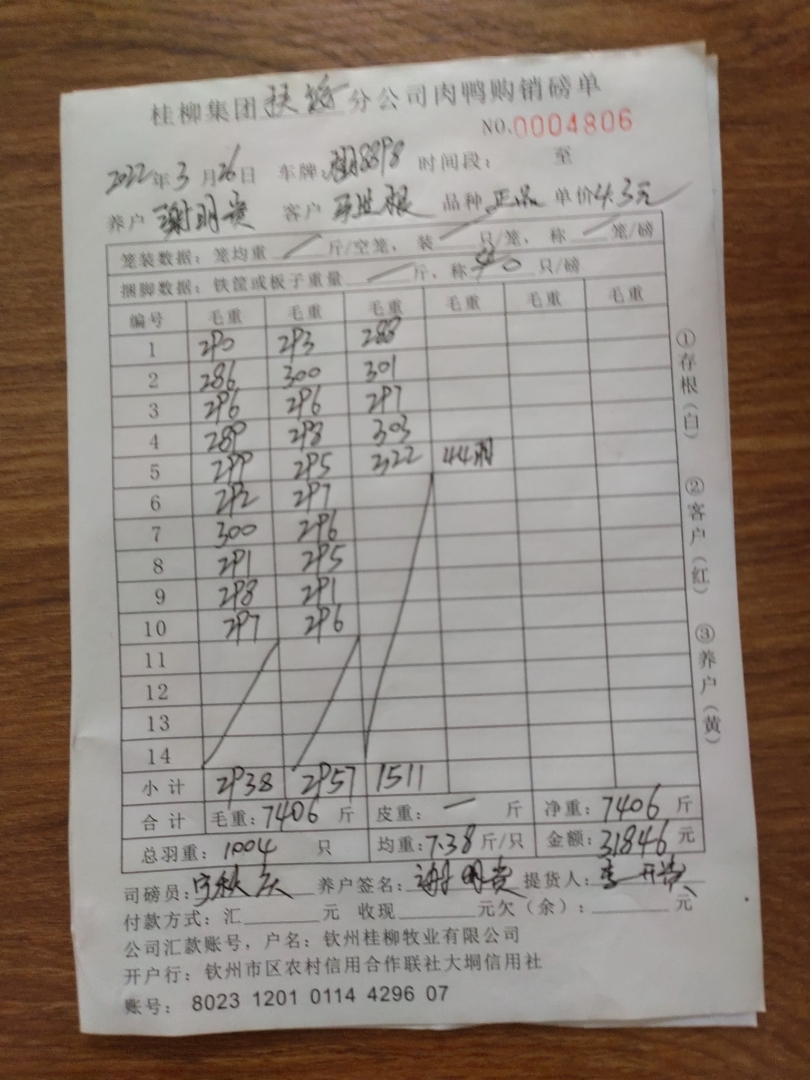 桂柳集团扶绥分公司肉鸭购销磅单
NO.0004806
2022年3月26日 车牌:8898 时间段: 至
养户 谢明贵 客户 根 品种 正品 单价4.3元
笼装数据: 笼均重 / 斤/空笼, 装 / 只/笼, 称 / 笼/磅
捆脚数据: 铁筐或板子重量 / 斤, 称40只/磅
编号 毛重 毛重 毛重 毛重 毛重 毛重
1 290 293 288
2 286 300 301
3 296 296 297
4 289 298 303
5 299 295 322 44羽
6 292 297
7 300 296
8 291 295
9 298 291
10 297 296
11
12
13
14
小计 2938 2957 1511
合计 毛重:7406 斤 皮重: — 斤 净重:7406 斤
总羽重:1004 只 均重:7.38斤/只 金额:31846元
司磅员: 养户签名:谢明贵 提货人:
付款方式:汇______元 收现______元欠(余):______元
公司汇款账号,户名:钦州桂柳牧业有限公司
开户行:钦州市区农村信用合作联社大垌信用社
账号: 8023 1201 0114 4296 07
①存根(白) ②客户(红) ③养户(黄)